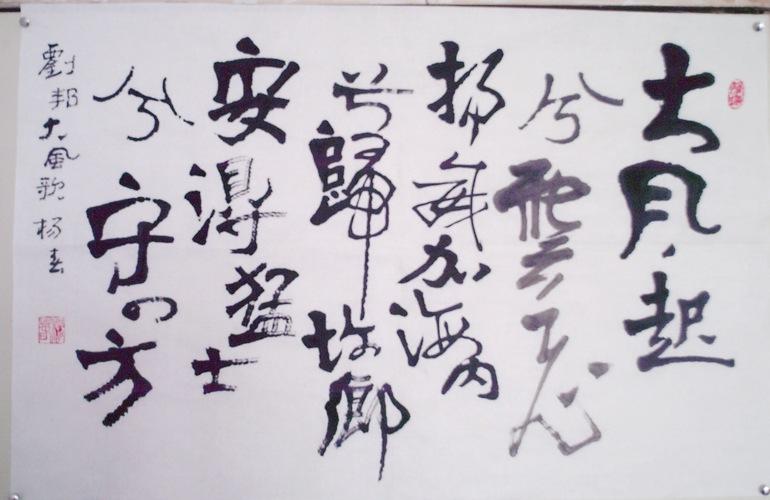 大风起
兮雲飞
扬威加海内
兮歸故鄉
安得猛士
兮守四方
劉邦大風歌 杨春